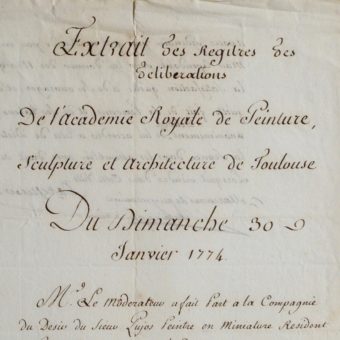 Extrait des Regitres des
deliberations
De l'academie Royale de Peinture,
Sculpture et Architecture de Toulouse
Du Dimanche 30
Janvier 1774.
Mr. Le Moderateur a fait Part a la Compagnie
du Desir du Sieur Pujos Peintre en Miniature Resident